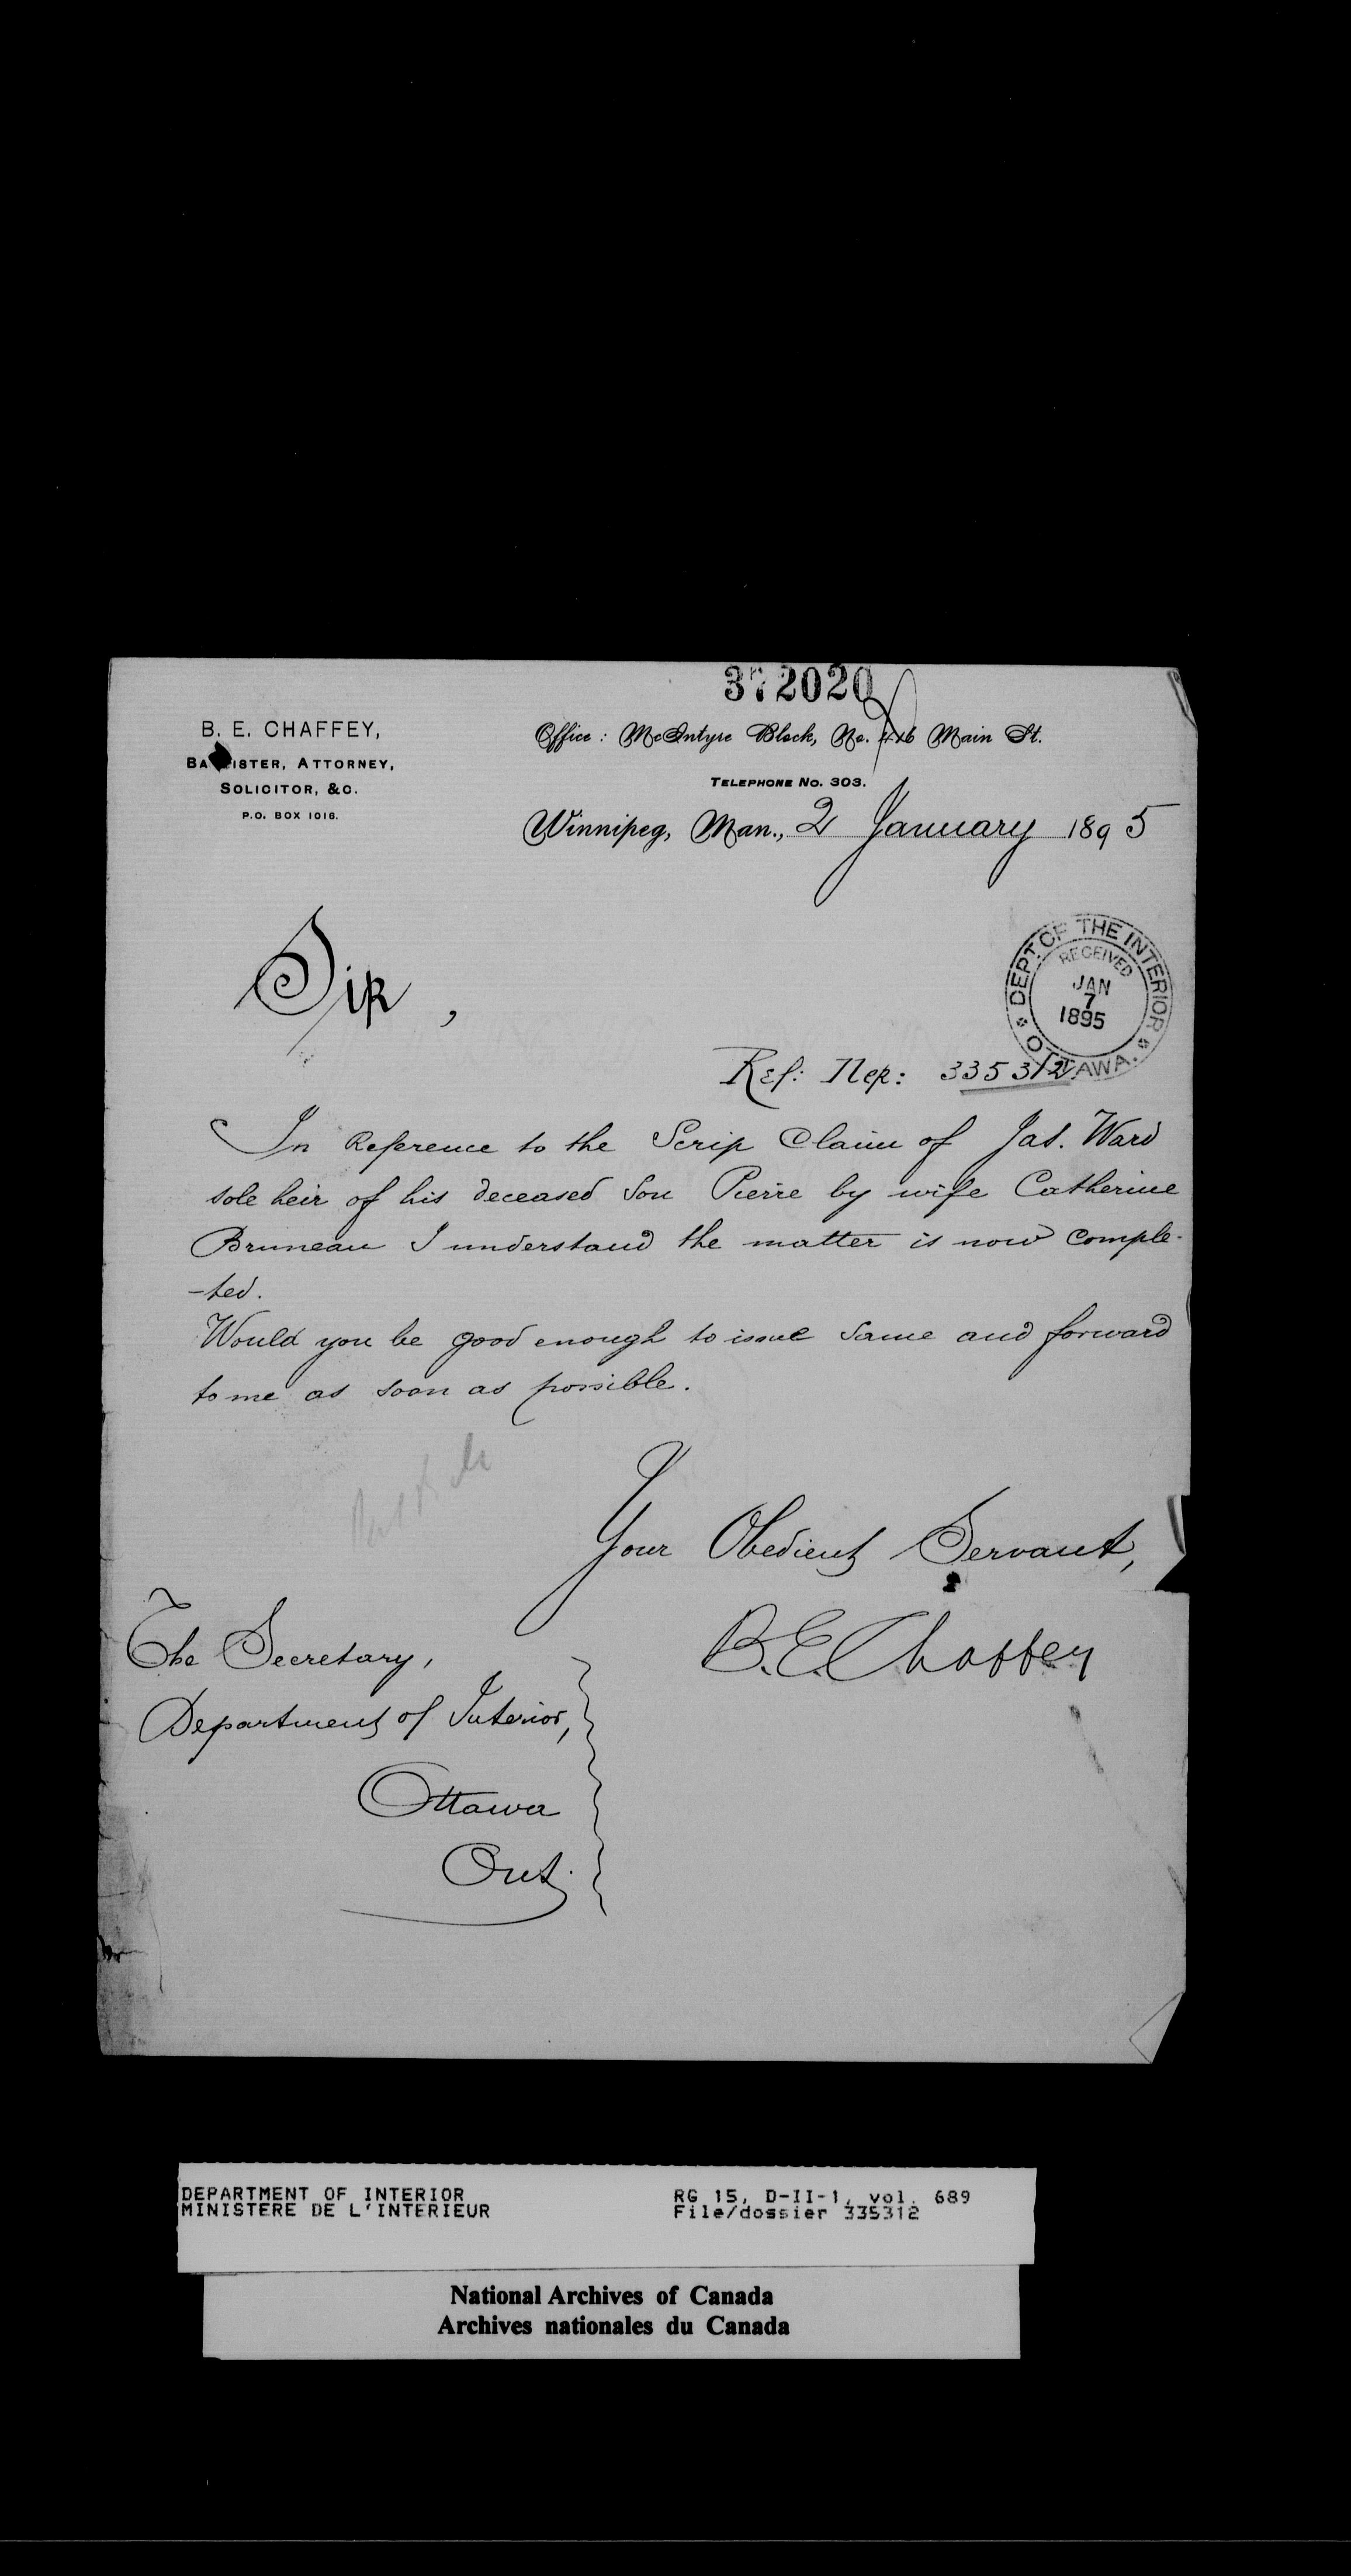 372020
B. E. CHAFFEY,
BARRISTER, ATTORNEY,
SOLICITOR, &C.
P.O. BOX 1016.
Office: McIntyre Block, No. 416 Main St.
TELEPHONE No. 303.
Winnipeg, Man., 2 January 1895
Sir,
DEPT. OF THE INTERIOR
RECEIVED
JAN
7
1895
OTTAWA.
Ref: Ner: 335312
In Reference to the Scrip Claim of Jas. Ward
sole heir of his deceased Son Pierre by wife Catherine
Bruneau I understand the matter is now comple-
-ted.
Would you be good enough to issue same and forward
to me as soon as possible.
Your Obedient Servant,
B.E. Chaffey
The Secretary,
Department of Interior,
Ottawa
Ont.
DEPARTMENT OF INTERIOR
MINISTERE DE L'INTERIEUR
RG 15, D-II-1, vol. 689
File/dossier 335312
National Archives of Canada
Archives nationales du Canada